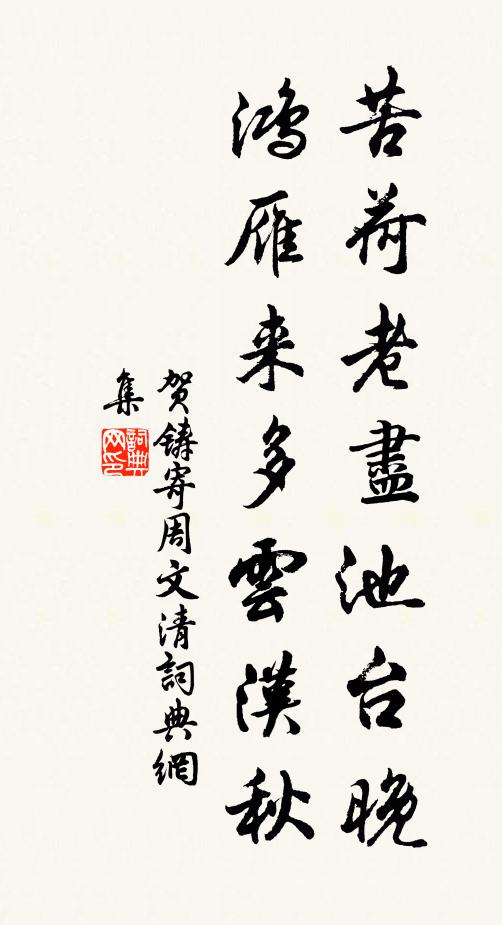 苦荷老盡池台晚
鴻雁来多雲漢秋
賀鑄寄周文清詞典網
集
詞典
网印